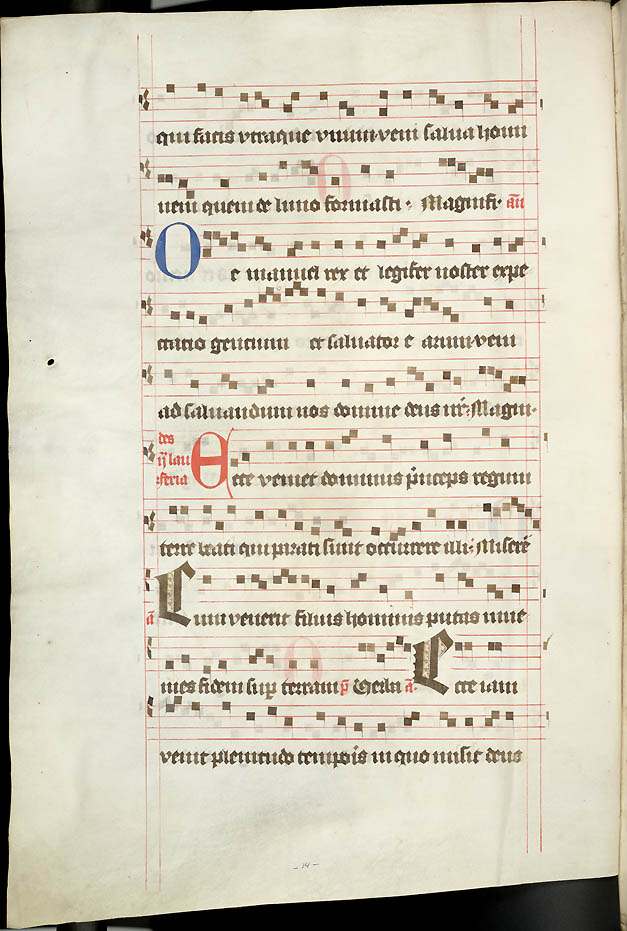 qui facis vtraque vnum·veni salua homi
nem quem de limo formasti · Magnifi· añ
O e manuel rex et legifer noster expe
ctatio gentium et saluator e arum·veni
ad saluandum nos domine deus nr̄· Magni·
des
ij lau
feria
Ecce veniet dominus p̄nceps regum
terre beati qui parati sunt occurrere illi· Miserē
a̅ Cum venerit filius hominis putas inue
niet fidem suꝑ terram p̄ Celi a̅· Ecce iam
venit plenitudo tempoꝛis in quo misit deus
– 14 –